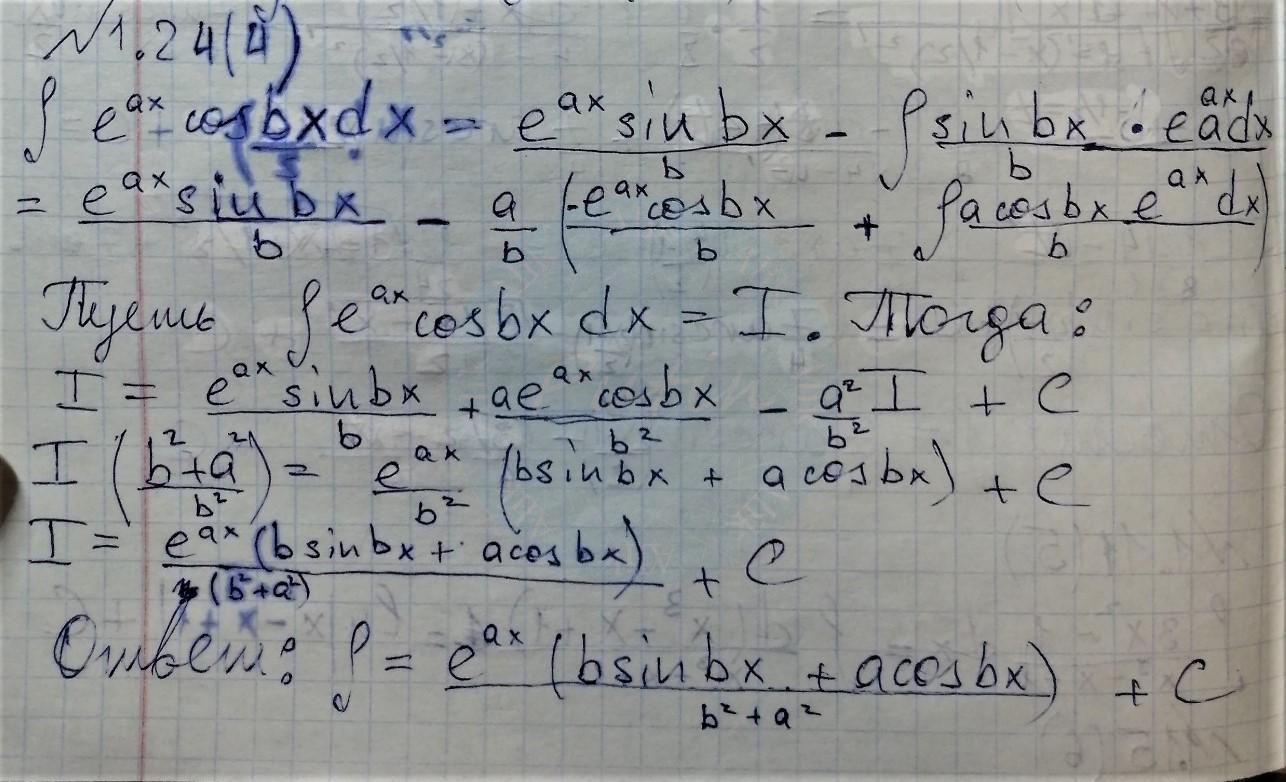 №1.24(4)
∫ e^{ax} cos bx dx = \frac{e^{ax} sin bx}{b} - ∫ \frac{sin bx · e^{ax} a dx}{b}
= \frac{e^{ax} sin bx}{b} - \frac{a}{b} (\frac{-e^{ax} cos bx}{b} + ∫ \frac{a cos bx e^{ax} dx}{b})
Пусть ∫ e^{ax} cos bx dx = I. Тогда:
I = \frac{e^{ax} sin bx}{b} + \frac{a e^{ax} cos bx}{b^2} - \frac{a^2}{b^2} I + C
I (\frac{b^2 + a^2}{b^2}) = \frac{e^{ax}}{b^2} (b sin bx + a cos bx) + C
I = \frac{e^{ax} (b sin bx + a cos bx)}{(b^2 + a^2)} + C
Ответ: ∫ = \frac{e^{ax} (b sin bx + a cos bx)}{b^2 + a^2} + C